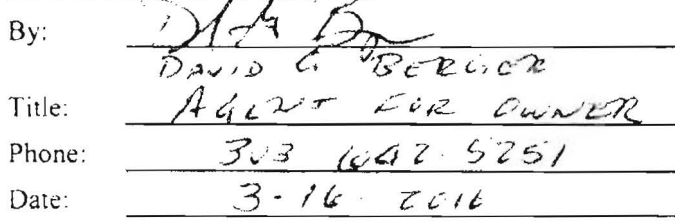 By:
DAVID G BERGER
Title: AGENT FOR OWNER
Phone: 303 642 5251
Date: 3-16 2016